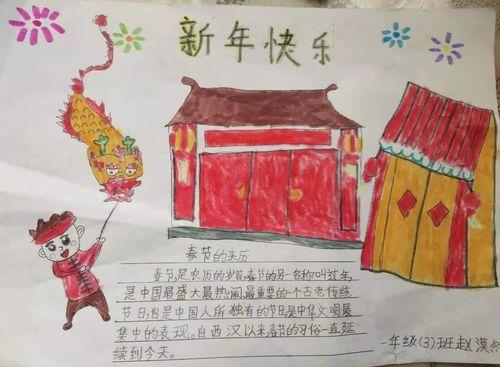 新年快乐
春节的来历
春节,是农历的岁首,春节的另一名称叫过年,
是中国最盛大、最热闹、最重要的一个古老传统
节日,也是中国人所独有的节日,是中华文明最
集中的表现。自西汉以来,春节的习俗一直延
续到今天。
一年级(3)班赵漠